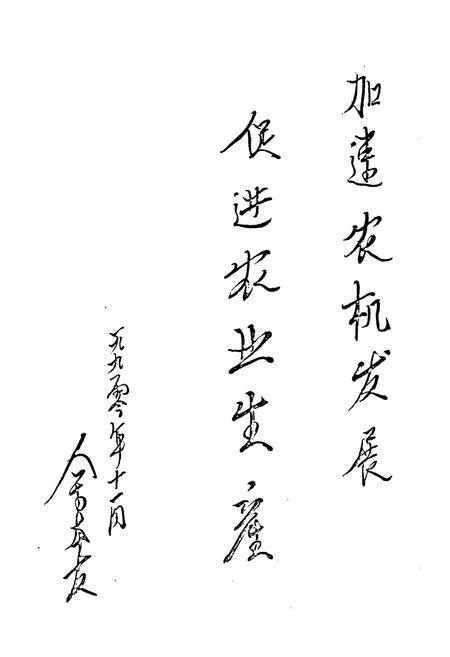 加速农机发展
促进农业生产
一九九零年十一月